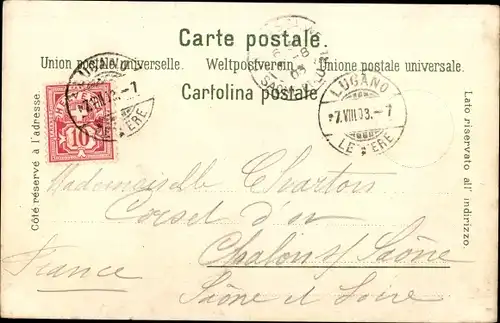 Carte postale.
Union postale universelle. Weltpostverein. Unione postale universale.
Cartolina postale
Côté réservé à l'adresse.
Lato riservato all' indirizzo.
LUGANO
7.VIII.03.-7
LETTERE
HELVETIA
10
LUGANO
7.VIII.03.-7
LETTERE
03
Mademoiselle Chartois
Corset d'or
Chalon s/ Saône
France
Saône et Loire